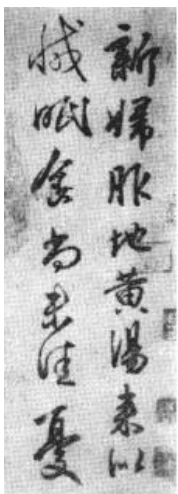 新婦服地黄湯来似
減眠食尚未佳憂